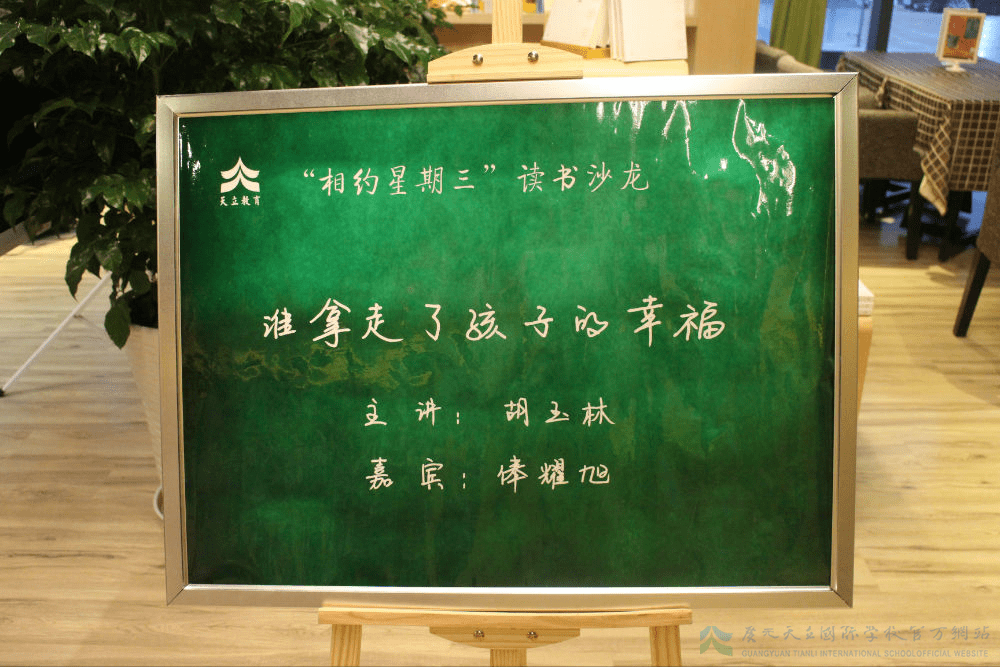 “相约星期三”读书沙龙
天立教育
谁拿走了孩子的幸福
主讲：胡玉林
嘉宾：俸耀旭
广元天立国际学校官方網站
GUANGYUAN TIANLI INTERNATIONAL SCHOOL OFFICIAL WEBSITE